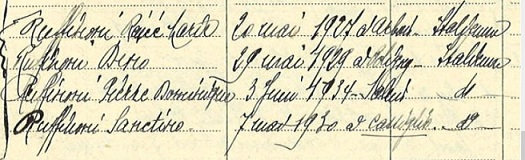 Ruffinoni Pepée Marie 20 mai 1927 à Achent - Italienne
Ruffinoni Dino 29 mai 1929 à - Italienne
Ruffinoni Pierre Dominique 3 Juin 1934 - d°
Ruffinoni Sanctino. 7 mai 1930 à d°